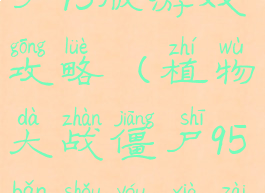 尸95版游戏
gōng lüè zhí wù
攻略（植物
dà zhàn jiāng shī
大战僵尸95
bǎn shǒu yóu xià zài